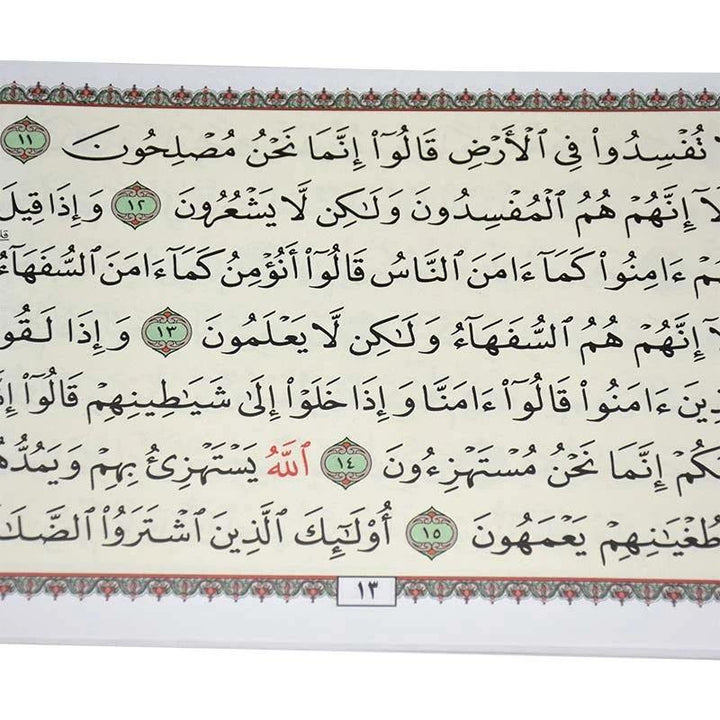 تُفْسِدُوا۟ فِى ٱلْأَرْضِ قَالُوٓا۟ إِنَّمَا نَحْنُ مُصْلِحُونَ ١١
إِنَّهُمْ هُمُ ٱلْمُفْسِدُونَ وَلَٰكِن لَّا يَشْعُرُونَ ١٢ وَإِذَا قِيلَ
ءَامِنُوا۟ كَمَآ ءَامَنَ ٱلنَّاسُ قَالُوٓا۟ أَنُؤْمِنُ كَمَآ ءَامَنَ ٱلسُّفَهَآءُ
إِنَّهُمْ هُمُ ٱلسُّفَهَآءُ وَلَٰكِن لَّا يَعْلَمُونَ ١٣ وَإِذَا لَقُو
ءَامَنُوا۟ قَالُوٓا۟ ءَامَنَّا وَإِذَا خَلَوْا۟ إِلَىٰ شَيَٰطِينِهِمْ قَالُوٓا۟
إِنَّمَا نَحْنُ مُسْتَهْزِءُونَ ١٤ ٱللَّهُ يَسْتَهْزِئُ بِهِمْ وَيَمُدُّهُ
طُغْيَٰنِهِمْ يَعْمَهُونَ ١٥ أُو۟لَٰٓئِكَ ٱلَّذِينَ ٱشْتَرَوُا۟ ٱلضَّلَٰ
١٣